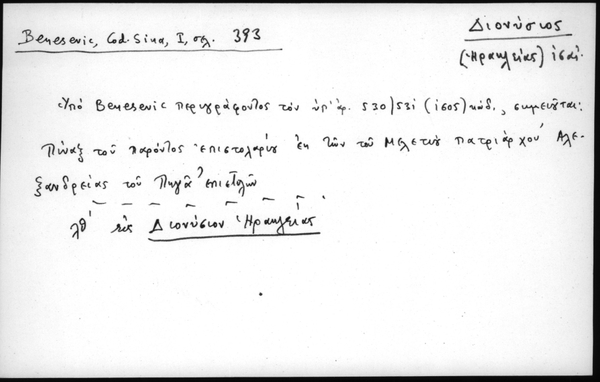 Benesevic, Cod. Sina, I, σελ. 393
Διονύσιος
(Ἡρακλείας) ις αἰ.
Ὑπὸ Benesevic περιγράφοντος τὸν ὑπ' ἀρ. 530/531 (ις αἰ.) κώδ., σημειοῦται:
Πίναξ τοῦ παρόντος ἐπιστολαρίου ἐκ τῶν τοῦ Μελετίου πατριάρχου Ἀλε-
ξανδρείας τοῦ Πηγᾶ ἐπιστολῶν
λθ' εἰς Διονύσιον Ἡρακλείας